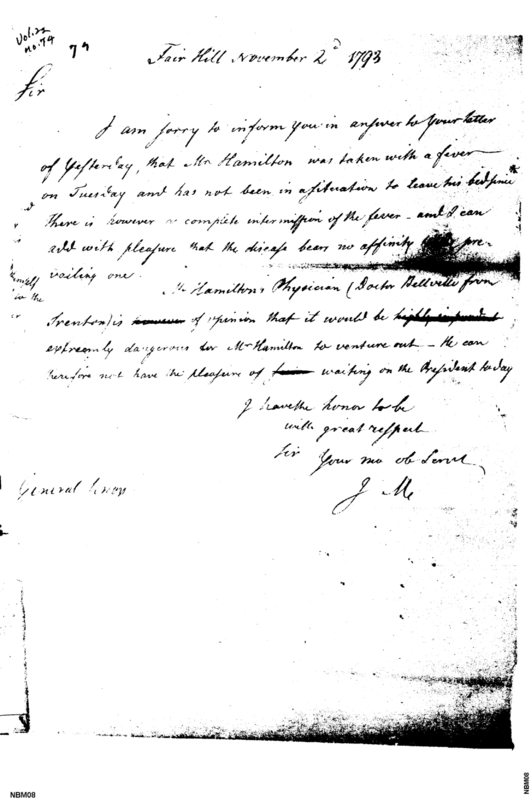 Vol. 22
no. 74
74
Fair Hill November 2d 1793
Sir
I am sorry to inform you in answer to Your letter
of Yesterday, that Mr Hamilton was taken with a fever
on Tuesday and has not been in a situation to leave his bed since
There is however a complete intermission of the fever - and I can
add with pleasure that the disease bears no affinity pre-
vailing one.
himself
in the
or
Mr Hamiltons Physician (Doctor Bellville from
Trenton) is however of opinion that it would be highly imprudent
extreemly dangerous for Mr Hamilton to venture out - He can
therefore not have the pleasure of waiting on the President to day
I have the honor to be
with great respect
Sir Your mo ob Servt
J M
General Knox
NBM08
NBM08